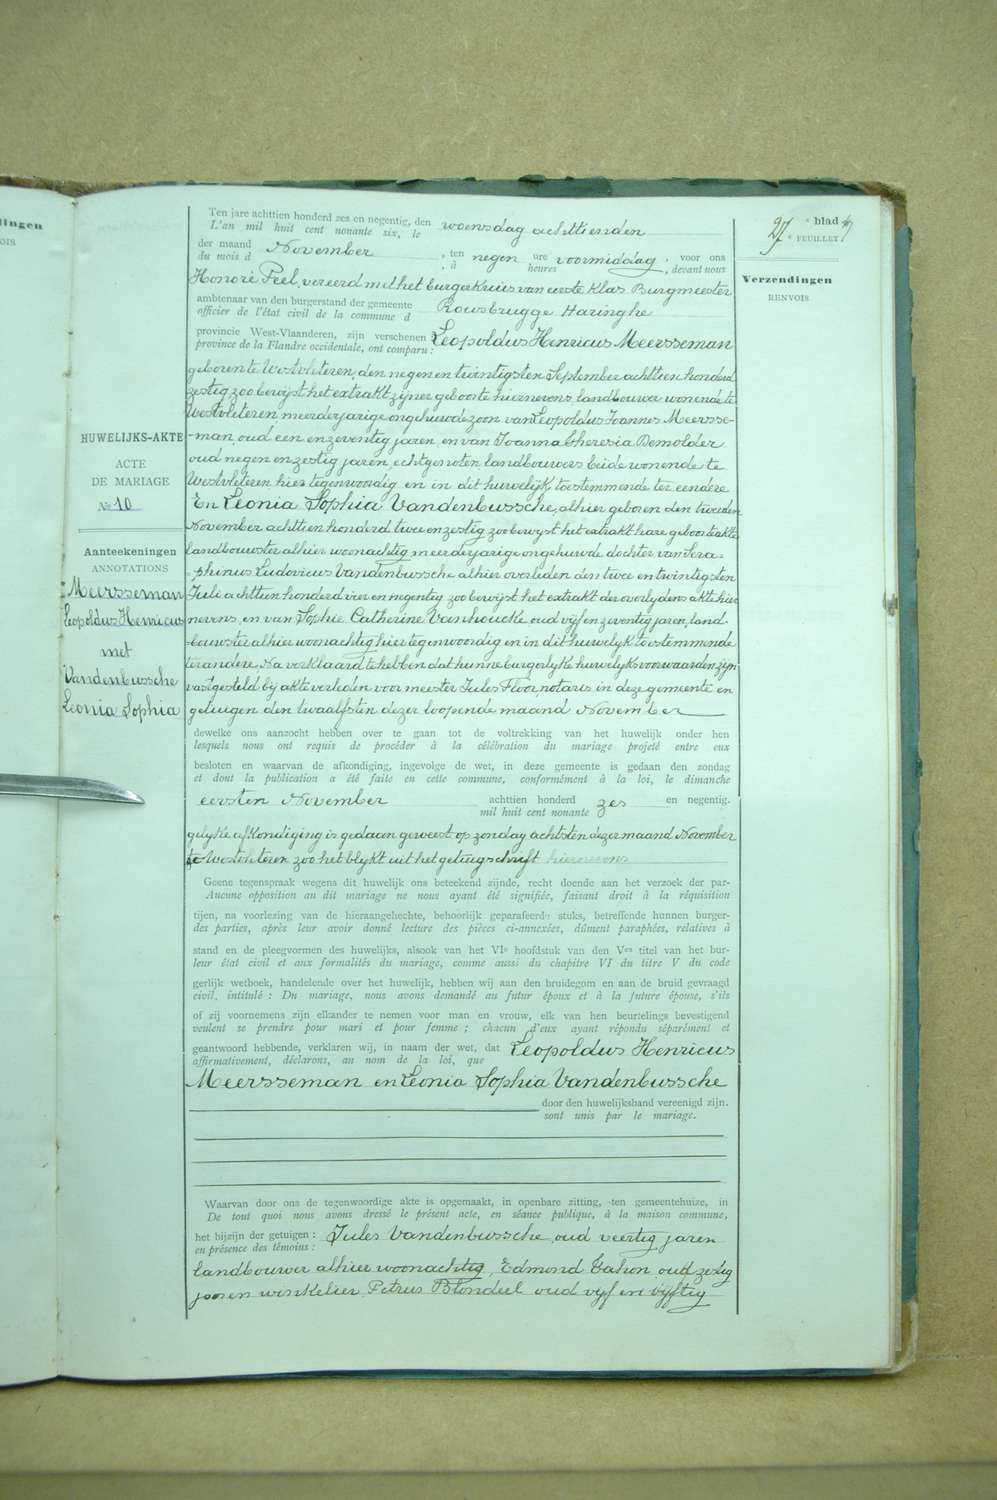 lingen
OIS
27e blad
FEUILLET
Verzendingen
RENVOIS
HUWELIJKS-AKTE
ACTE
DE MARIAGE
No 10
Aanteekeningen
ANNOTATIONS
Meersseman
Leopoldus Henricus
met
Vandenbussche
Leonia Sophia
Ten jare achttien honderd zes en negentig, den woensdag achttienden
L'an mil huit cent nonante six, le
der maand November, ten negen ure voormiddag, voor ons
du mois d , à heures , devant nous
Honoré Peel, vereerd met het burgerkruis van eerste Klas Burgmeester
ambtenaar van den burgerstand der gemeente Rousbrugge Haringhe
officier de l'état civil de la commune d
provincie West-Vlaanderen, zijn verschenen Leopoldus Henricus Meersseman
province de la Flandre occidentale, ont comparu :
geboren te Westvleteren, den negen en twintigsten September achttien honderd
zestig zoo bewijst het extrakt zijner geboorte hiernevens, landbouwer wonende te
Westvleteren meerderjarige ongehuwde zoon van Leopoldus Joannes Meersse-
-man, oud een en zeventig jaren, en van Joanna Theresia Demolder
oud negen en zestig jaren, echtgenoten, landbouwers beide wonende te
Westvleteren hier tegenwoordig en in dit huwelijk toestemmende ter eendere
En Leonia Sophia Vandenbussche, alhier geboren den tweeden
November achttien honderd twee en zestig zoo bewyst het extrakt hare geboorteakte
landbouwster alhier woonachtig meerderjarige ongehuwde dochter van Sera-
-phinus Ludovicus Vandenbussche alhier overleden den twee en twintigsten
Juli achttien honderd vier en negentig zoo bewijst het extrakt der overlydens akte hier
nevens, en van Sophie Catherine Vanhoucke oud vijf en zeventig jaren, land-
-bouwster alhier woonachtig hier tegenwoordig en in dit huwelyk toestemmende
ter andere. Na verklaard te hebben dat hunne burgerlyke huwelyksvoorwaarden zijn
vastgesteld bij akte verleden voor meester Jules Floor notaris in deze gemeente en
getuigen den twaalfsten dezer loopende maand November
dewelke ons aanzocht hebben over te gaan tot de voltrekking van het huwelijk onder hen
lesquels nous ont requis de procéder à la célébration du mariage projeté entre eux
besloten en waarvan de afkondiging, ingevolge de wet, in deze gemeente is gedaan den zondag
et dont la publication a été faite en cette commune, conformément à la loi, le dimanche
eersten November achttien honderd zes en negentig.
mil huit cent nonante
gelyke afkondiging is gedaan geweest op zondag achtsten dezer maand November
te Westvleteren zoo het blykt uit het getuigschrift hiernevens
Geene tegenspraak wegens dit huwelijk ons beteekend zijnde, recht doende aan het verzoek der par-
Aucune opposition au dit mariage ne nous ayant été signifiée, faisant droit à la réquisition
tijen, na voorlezing van de hieraangehechte, behoorlijk geparafeerde stuks, betreffende hunnen burger-
des parties, après leur avoir donné lecture des pièces ci-annexées, dûment paraphées, relatives à
stand en de pleegvormen des huwelijks, alsook van het VIe hoofdstuk van den Ven titel van het bur-
leur état civil et aux formalités du mariage, comme aussi du chapitre VI du titre V du code
gerlijk wetboek, handelende over het huwelijk, hebben wij aan den bruidegom en aan de bruid gevraagd
civil, intitulé : Du mariage, nous avons demandé au futur époux et à la future épouse, s'ils
of zij voornemens zijn elkander te nemen voor man en vrouw, elk van hen beurtelings bevestigend
veulent se prendre pour mari et pour femme ; chacun d'eux ayant répondu séparément et
geantwoord hebbende, verklaren wij, in naam der wet, dat Leopoldus Henricus
affirmativement, déclarons, au nom de la loi, que
Meersseman en Leonia Sophia Vandenbussche
door den huwelijksband vereenigd zijn.
sont unis par le mariage.
Waarvan door ons de tegenwoordige akte is opgemaakt, in openbare zitting, ten gemeentehuize, in
De tout quoi nous avons dressé le présent acte, en séance publique, à la maison commune,
het bijzijn der getuigen : Jules Vandenbussche, oud veertig jaren
en présence des témoins :
landbouwer alhier woonachtig, Edmond Cahon oud zestig
jaren winkelier, Petrus Blondeel oud vyf en vyftig